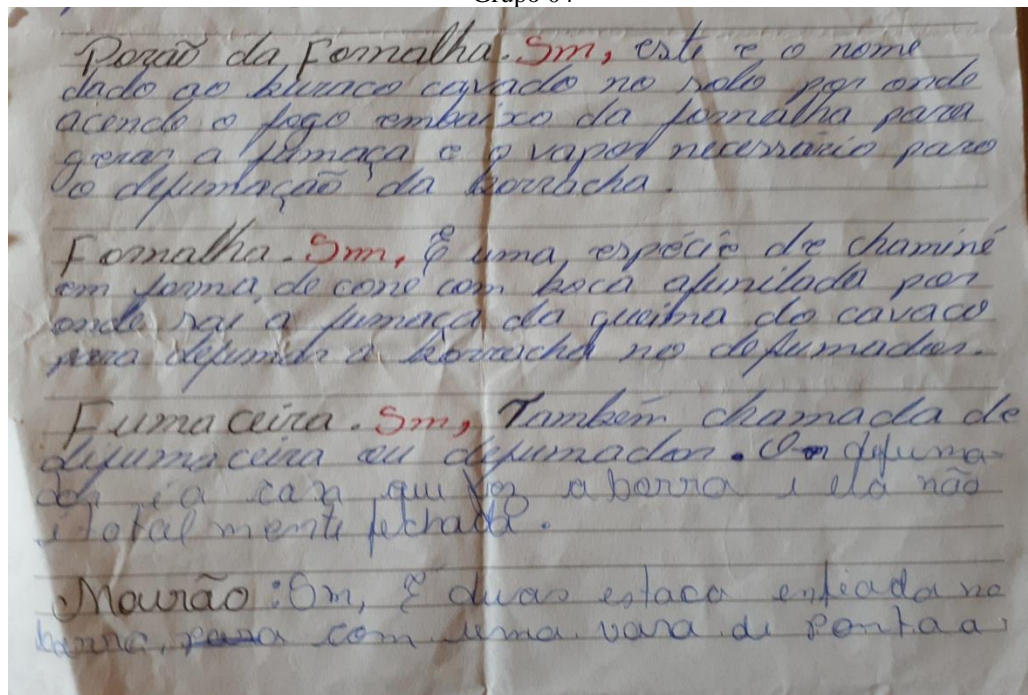 Grupo 04
Porão da Fornalha. Sm, este e o nome
dado ao buraco cavado no solo por onde
acende o fogo embaixo da fornalha para
gerar a fumaça e o vapor necessário para
o defumação da borracha.
Fornalha. Sm, É uma espécie de chaminé
em forma de cone com boca afunilada por
onde sai a fumaça da queima do cavaco
para defumar a borracha no defumador.
Fumaceira. Sm, Também chamada de
defumaceira ou defumador. O defuma-
dor é a casa que faz a borra e ela não
é total mente fechada.
Mourão: Sm, É duas estaca enfiada no
com uma vara de ponta a